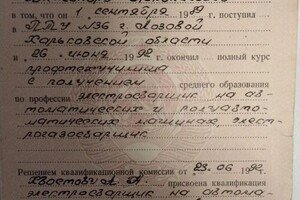 в том, что он 1 сентября 1989 г. поступил
в ПТУ №36 г. Лозовой
Харьковской области
и 26 июня 1992 г. окончил полный курс
профтехучилища
с получением среднего образования
по профессии электросварщик на ав-
томатических и полуавто-
матических машинах, элект-
рогазосварщик
Решением квалификационной комиссии от 23.06 1992 г.
присвоена квалификация
электросварщик на автома-